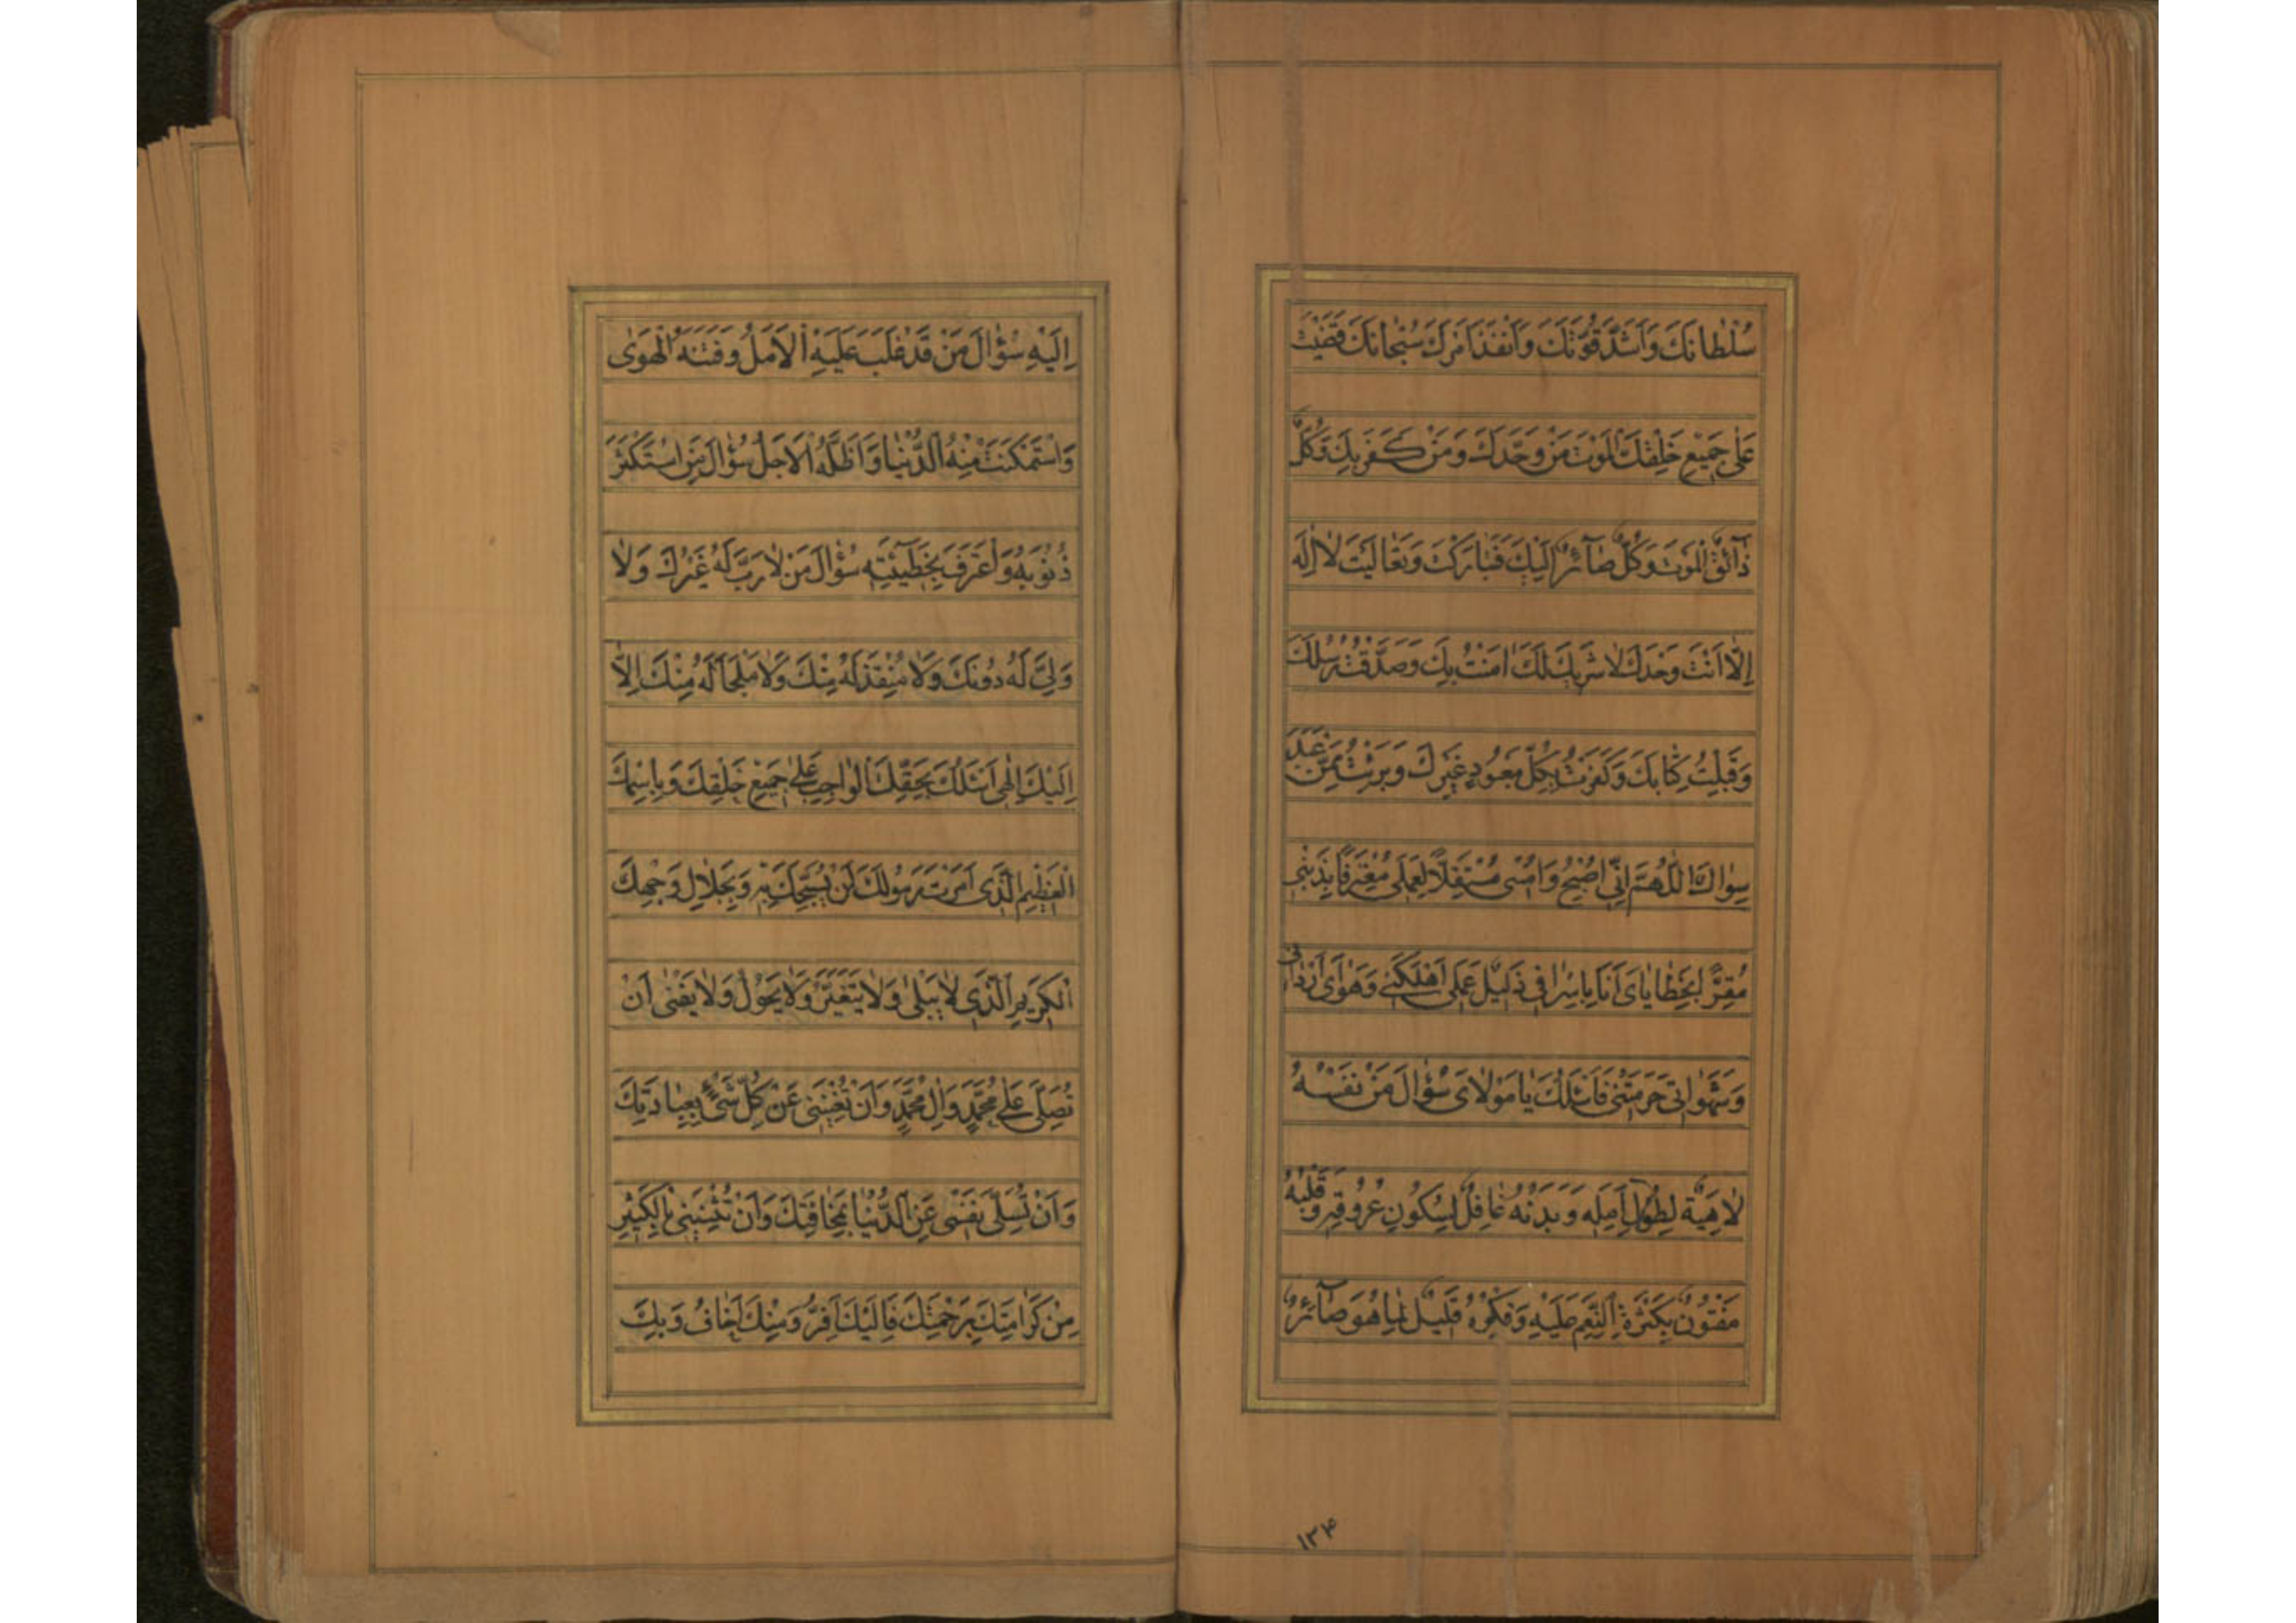 سُلْطانَكَ وَاَشَدَّ قُوَّتَكَ وَاَنْفَذَ اَمْرَكَ سُبْحانَكَ قَضَيْتَ
عَلىٰ جَميعِ خَلْقِكَ الْمَوْتَ مَنْ وَحَّدَكَ وَمَنْ كَفَرَ بِكَ وَكُلٌّ
ذآئِقُ الْمَوْتِ وَكُلٌّ صآئِرٌ اِلَيْكَ فَتَبارَكْتَ وَتَعالَيْتَ لا اِلٰهَ
اِلّا اَنْتَ وَحْدَكَ لا شَريكَ لَكَ امَنْتُ بِكَ وَصَدَّقْتُ رُسُلَكَ
وَقَبِلْتُ كِتابَكَ وَكَفَرْتُ بِكُلِّ مَعْبُودٍ غَيْرِكَ وَبَرِئْتُ مِمَّنْ عَبَدَ
سِواكَ اَللّٰهُمَّ اِنّي اُصْبِحُ وَاُمْسي مُسْتَقِلّاً لِعَمَلي مُعْتَرِفاً بِذَنْبي
مُقِرّاً بِخَطاياىَ اَنَا بِاِسْرافي ذَليلٌ عَمَلي اَهْلَكَني وَهَواىَ اَرْداني
وَشَهَواتي حَرَمَتْني فَاَسْئَلُكَ يا مَوْلاىَ سُؤالَ مَنْ نَفْسُهُ
لاهِيَةٌ لِطُولِ اَمَلِه وَبَدَنُهُ غافِلٌ لِسُكُونِ عُرُوقِه وَقَلْبُهُ
مَفْتُونٌ بِكَثْرَةِ النِّعَمِ عَلَيْهِ وَفِكْرُهُ قَليلٌ لِما هُوَ صآئِرٌ
١٣۴
اِلَيْهِ سُؤالَ مَنْ قَدْ غَلَبَ عَلَيْهِ الْاَمَلُ وَفَتَنَهُ الْهَوىٰ
وَاسْتَمْكَنَتْ مِنْهُ الدُّنْيا وَاَظَلَّهُ الْاَجَلُ سُؤالَ مَنِ اسْتَكْثَرَ
ذُنُوبَهُ وَاعْتَرَفَ بِخَطيئَتِه سُؤالَ مَنْ لا رَبَّ لَهُ غَيْرُكَ وَلا
وَلِيَّ لَهُ دُونَكَ وَلا مُنْقِذَ لَهُ مِنْكَ وَلا مَلْجَاَ لَهُ مِنْكَ اِلّا
اِلَيْكَ اِلٰهي اَسْئَلُكَ بِحَقِّكَ الْواجِبِ عَلىٰ جَميعِ خَلْقِكَ وَبِاسْمِكَ
الْعَظيمِ الَّذي اَمَرْتَ رَسُولَكَ اَنْ يُسَبِّحَكَ بِه وَبِجَلالِ وَجْهِكَ
الْكَريمِ الَّذي لا يَبْلىٰ وَلا يَتَغَيَّرُ وَلا يَحُولُ وَلا يَفْنىٰ اَنْ
تُصَلِّيَ عَلىٰ مُحَمَّدٍ وَالِ مُحَمَّدٍ وَاَنْ تُغْنِيَني عَنْ كُلِّ شَىْءٍ بِعِبادَتِكَ
وَاَنْ تُسَلِّيَ نَفْسي عَنِ الدُّنْيا بِمَخافَتِكَ وَاَنْ تُثْنِيَني بِالْكَثيرِ
مِنْ كَرامَتِكَ بِرَحْمَتِكَ فَاِلَيْكَ اَفِرُّ وَمِنْكَ اَخافُ وَبِكَ